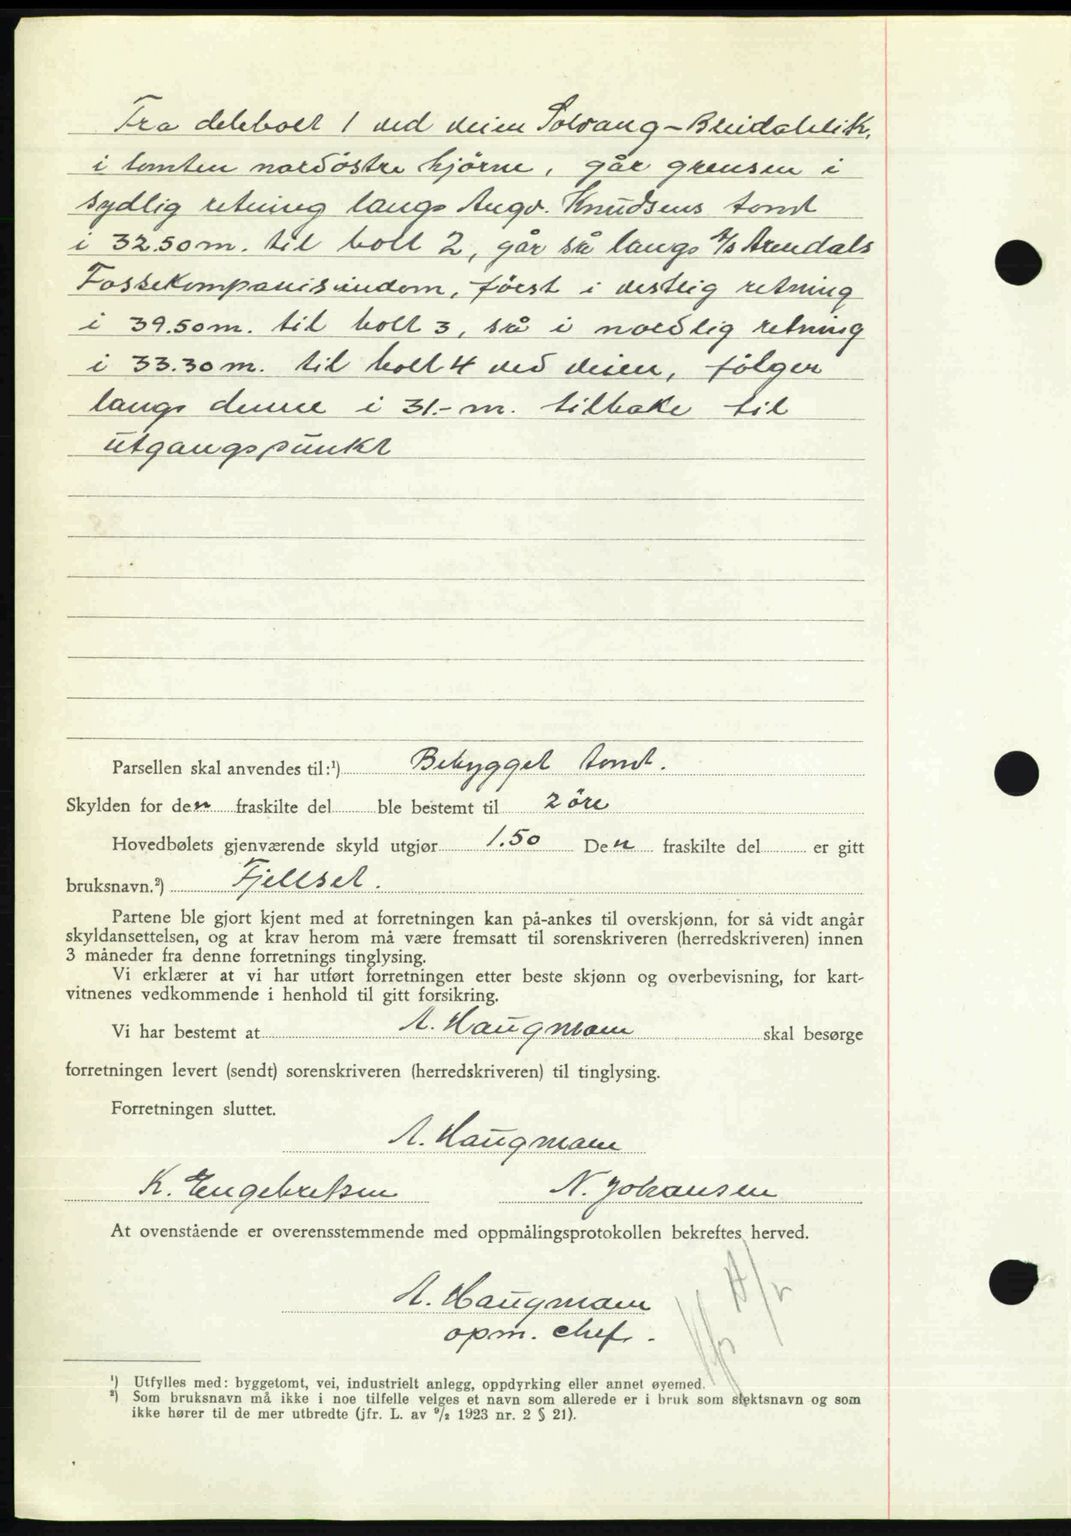 Fra delebolt 1 ved veien Solvang-Bleidaklik,
i tomten nordöstre hjörne, går grensen i
sydlig retning langs Angv. Knudsens tomt
i 32.50 m. til bolt 2, går så langs A/s Arendals
Fossekompanis eiendom, först i vestlig retning
i 39.50 m. til bolt 3, så i nordlig retning
i 33.30 m. til bolt 4 ved veien, fölger
langs denne i 31.- m. tilbake til
utgangspunkt
Parsellen skal anvendes til:¹) Bebygget tomt.
Skylden for den fraskilte del ble bestemt til 2 öre
Hovedbølets gjenværende skyld utgjør 1.50 Den fraskilte del er gitt
bruksnavn.²) Fjellset.
Partene ble gjort kjent med at forretningen kan på-ankes til overskjønn, for så vidt angår
skyldansettelsen, og at krav herom må være fremsatt til sorenskriveren (herredskriveren) innen
3 måneder fra denne forretnings tinglysing.
Vi erklærer at vi har utført forretningen etter beste skjønn og overbevisning, for kart-
vitnenes vedkommende i henhold til gitt forsikring.
Vi har bestemt at A. Haugmann skal besørge
forretningen levert (sendt) sorenskriveren (herredskriveren) til tinglysing.
Forretningen sluttet.
A. Haugmann
K. Engebretsen N. Johansen
At ovenstående er overensstemmende med oppmålingsprotokollen bekreftes herved.
A. Haugmann
opm. chef.
¹) Utfylles med: byggetomt, vei, industrielt anlegg, oppdyrking eller annet øyemed.
²) Som bruksnavn må ikke i noe tilfelle velges et navn som allerede er i bruk som slektsnavn og som
ikke hører til de mer utbredte (jfr. L. av ⁹/₂ 1923 nr. 2 § 21).